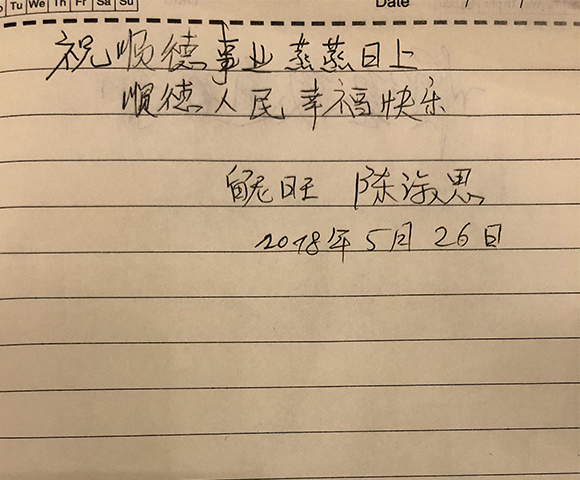 Tu We Th Fr Sa Su Date / /
祝顺德事业蒸蒸日上
顺德人民幸福快乐
旺 陈添恩
2018年5月26日